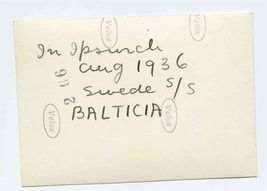 Velox
Velox
In Ipswich
Aug 1936
Swede S/S
BALTICIA
Velox
Velox